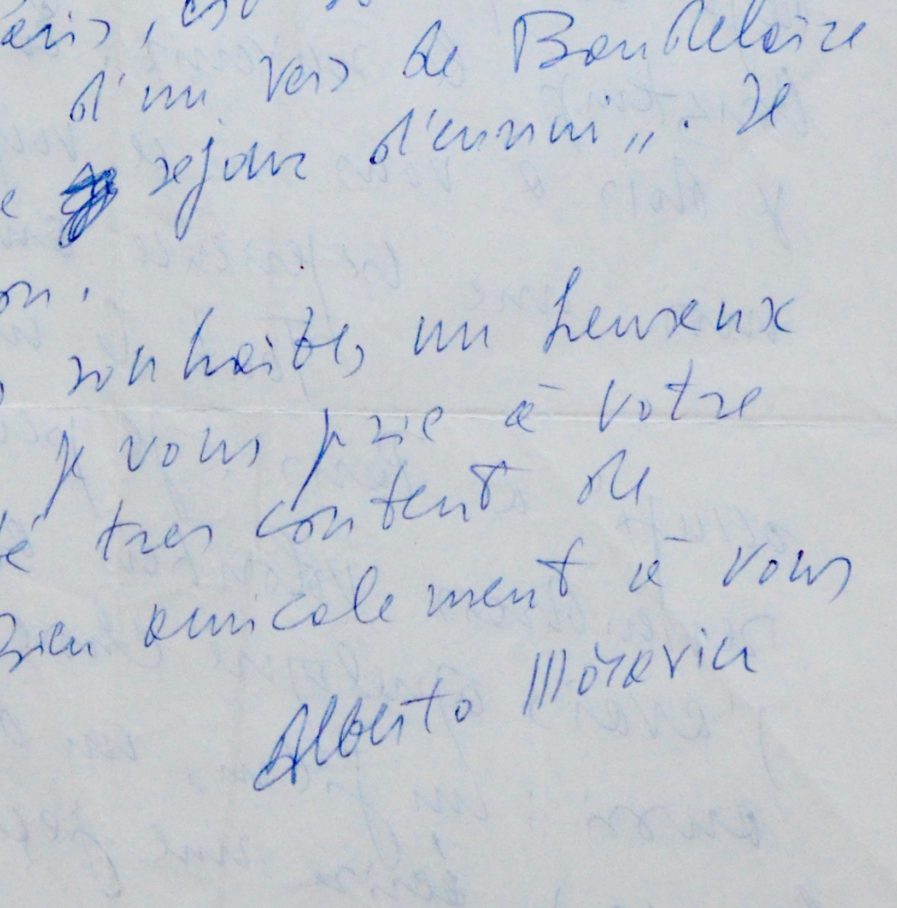 de Baudelaire
d'un vers
sejour d'ennui". Je
on.
souhaite, un heureux
je vous prie à votre
té tres content de
Bien amicalement à vous
Alberto Moravia